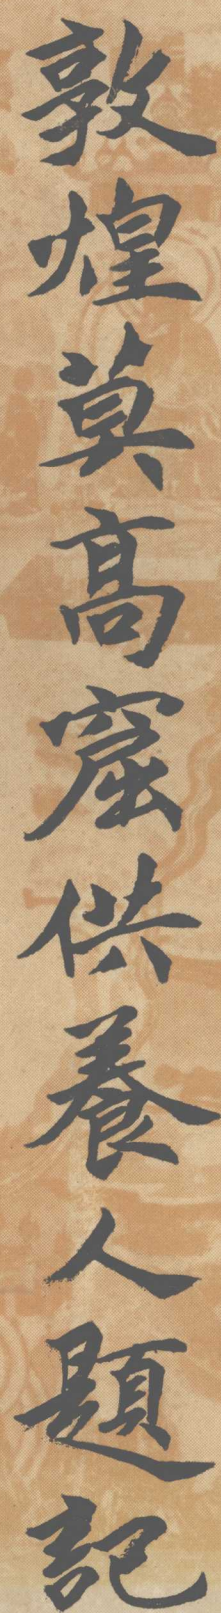 敦煌莫高窟供養人題記